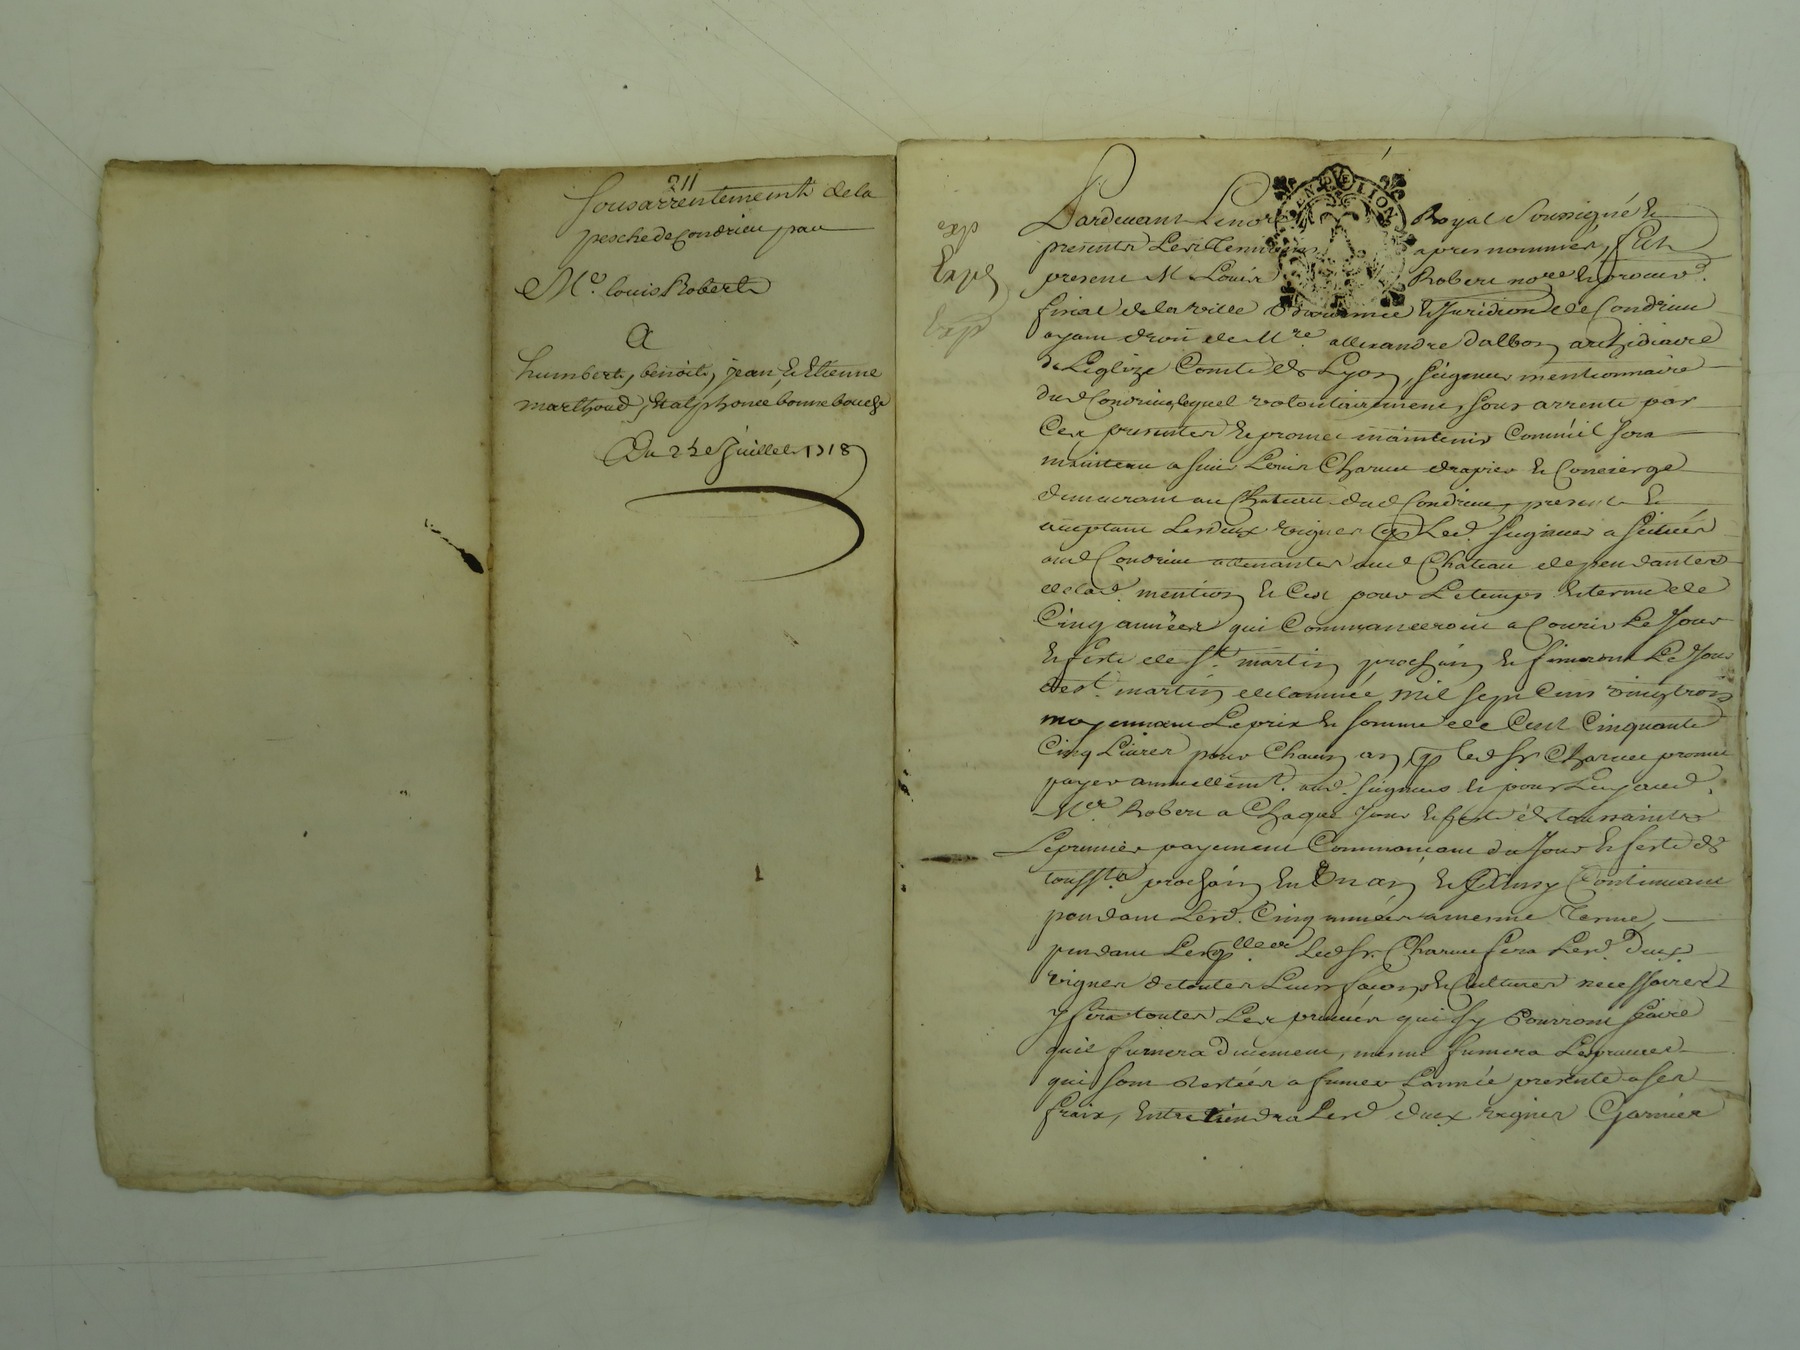 211
Sousarrentement de la
pesche de Condrieu par
Me. louis Robert
A
humbert, benoit, jean, & Etienne
marthoud, & alphonce bonnebouche
Du 2 de Juillet 1718
GEN DE LION
exp
Expé
Exp
Pardevant Le no.re Royal Soussigné &
presents Les Temoins apres nommés, fut
present Me Louis Robert no.re & procur.
fiscal de la ville & Juridion de Condrieu
ayant droit de M.re allexandre dalbon archidiacre
de Leglize Comte de Lyon, seigneur mentionnaire
dud Condrieu, lequel volontairement, sous arrente par
Ces presentes & promet maintenir Comme il sera
maintenu a sieur Louis Charue drapier & Concierge
demeurant au Chateau dud Condrieu, present &
acceptant Les deux vignes q Led. seigneur a scituées
aud Condrieu attenantes aud Chateau dependantes
de lad. mention & Ce pour Le temps & terme de
Cinq années qui Commanceront a Courir Le Jour
& feste de St. martin prochain & finiront Le Jour
de st. martin de lannée mil sept Cens vingt trois
moyennant Le prix & somme de Cent Cinquante
Cinq Livres pour Chacun an, q led Sr Charue promet
payer annuellemt. aud. seigneur & pour Luy aud.
Me. Robert a Chaque Jour & feste de toussaints
Le premier payement Commançant du Jour & feste de
toussts prochain En Un an & Ainsy Continuant
pendant Lesd. Cinq années a meme Terme,
pendant Lesqlles Led Sr. Charue fera Lesd. deux
vignes de toutes Leurs façons & Cultures necessaires
y fera toutes Les preuves qui sy Pourront faire
quil fumera Duement, meme fumera Les preuves
qui sont Restées a fumer Lannée presente a ses
fraix, Entretiendra Lesd deux vignes Garnies